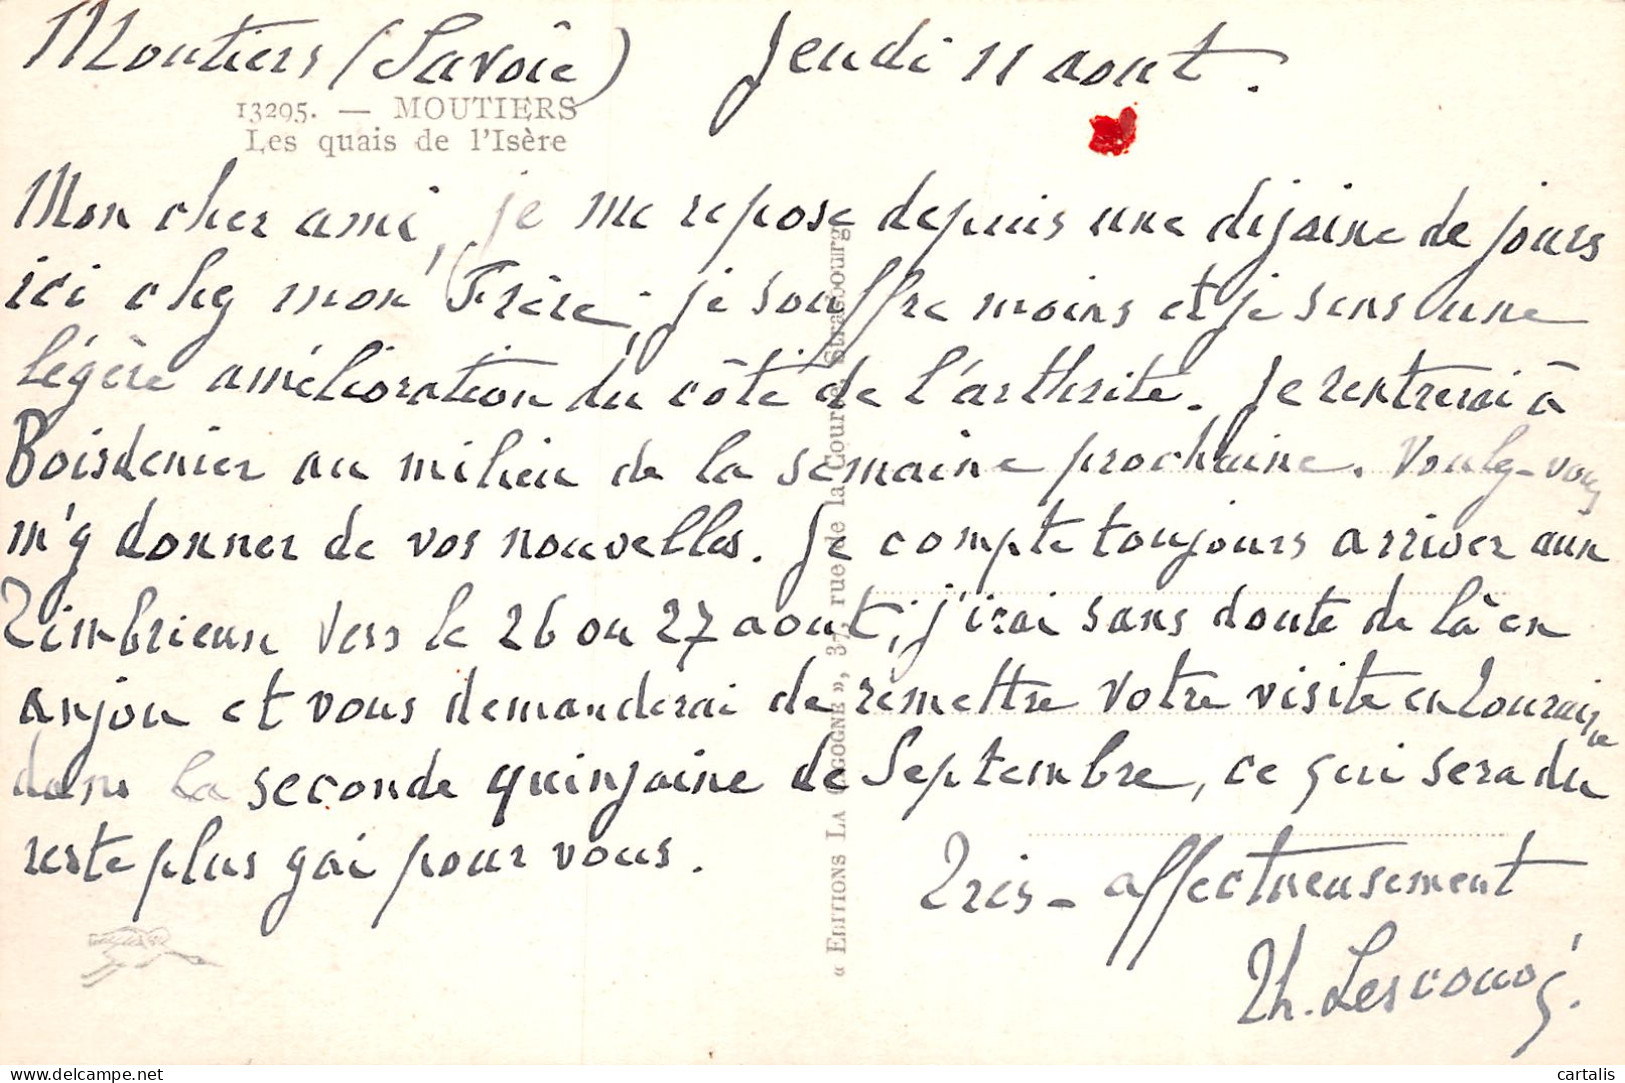 Moutiers (Savoie) Jeudi 11 aout.
13295. — MOUTIERS
Les quais de l'Isère
Mon cher ami, je me repose depuis une dizaine de jours
ici chez mon Frère; je souffre moins et je sens une
légère amélioration du côté de l'arthrite. Je rentrerai à
Boisdenier au milieu de la semaine prochaine. Voulez-vous
m'y donner de vos nouvelles. Je compte toujours arriver aux
Timbrieux vers le 26 ou 27 aout; j'irai sans doute de là en
anjou et vous demanderai de remettre votre visite en Touraine
dans la seconde quinzaine de Septembre, ce qui sera du
reste plus gai pour vous.
Très-affectueusement
Th.
« EDITIONS LA CIGOGNE », 37, rue de la Course, Strasbourg
cartalis
www.delcampe.net